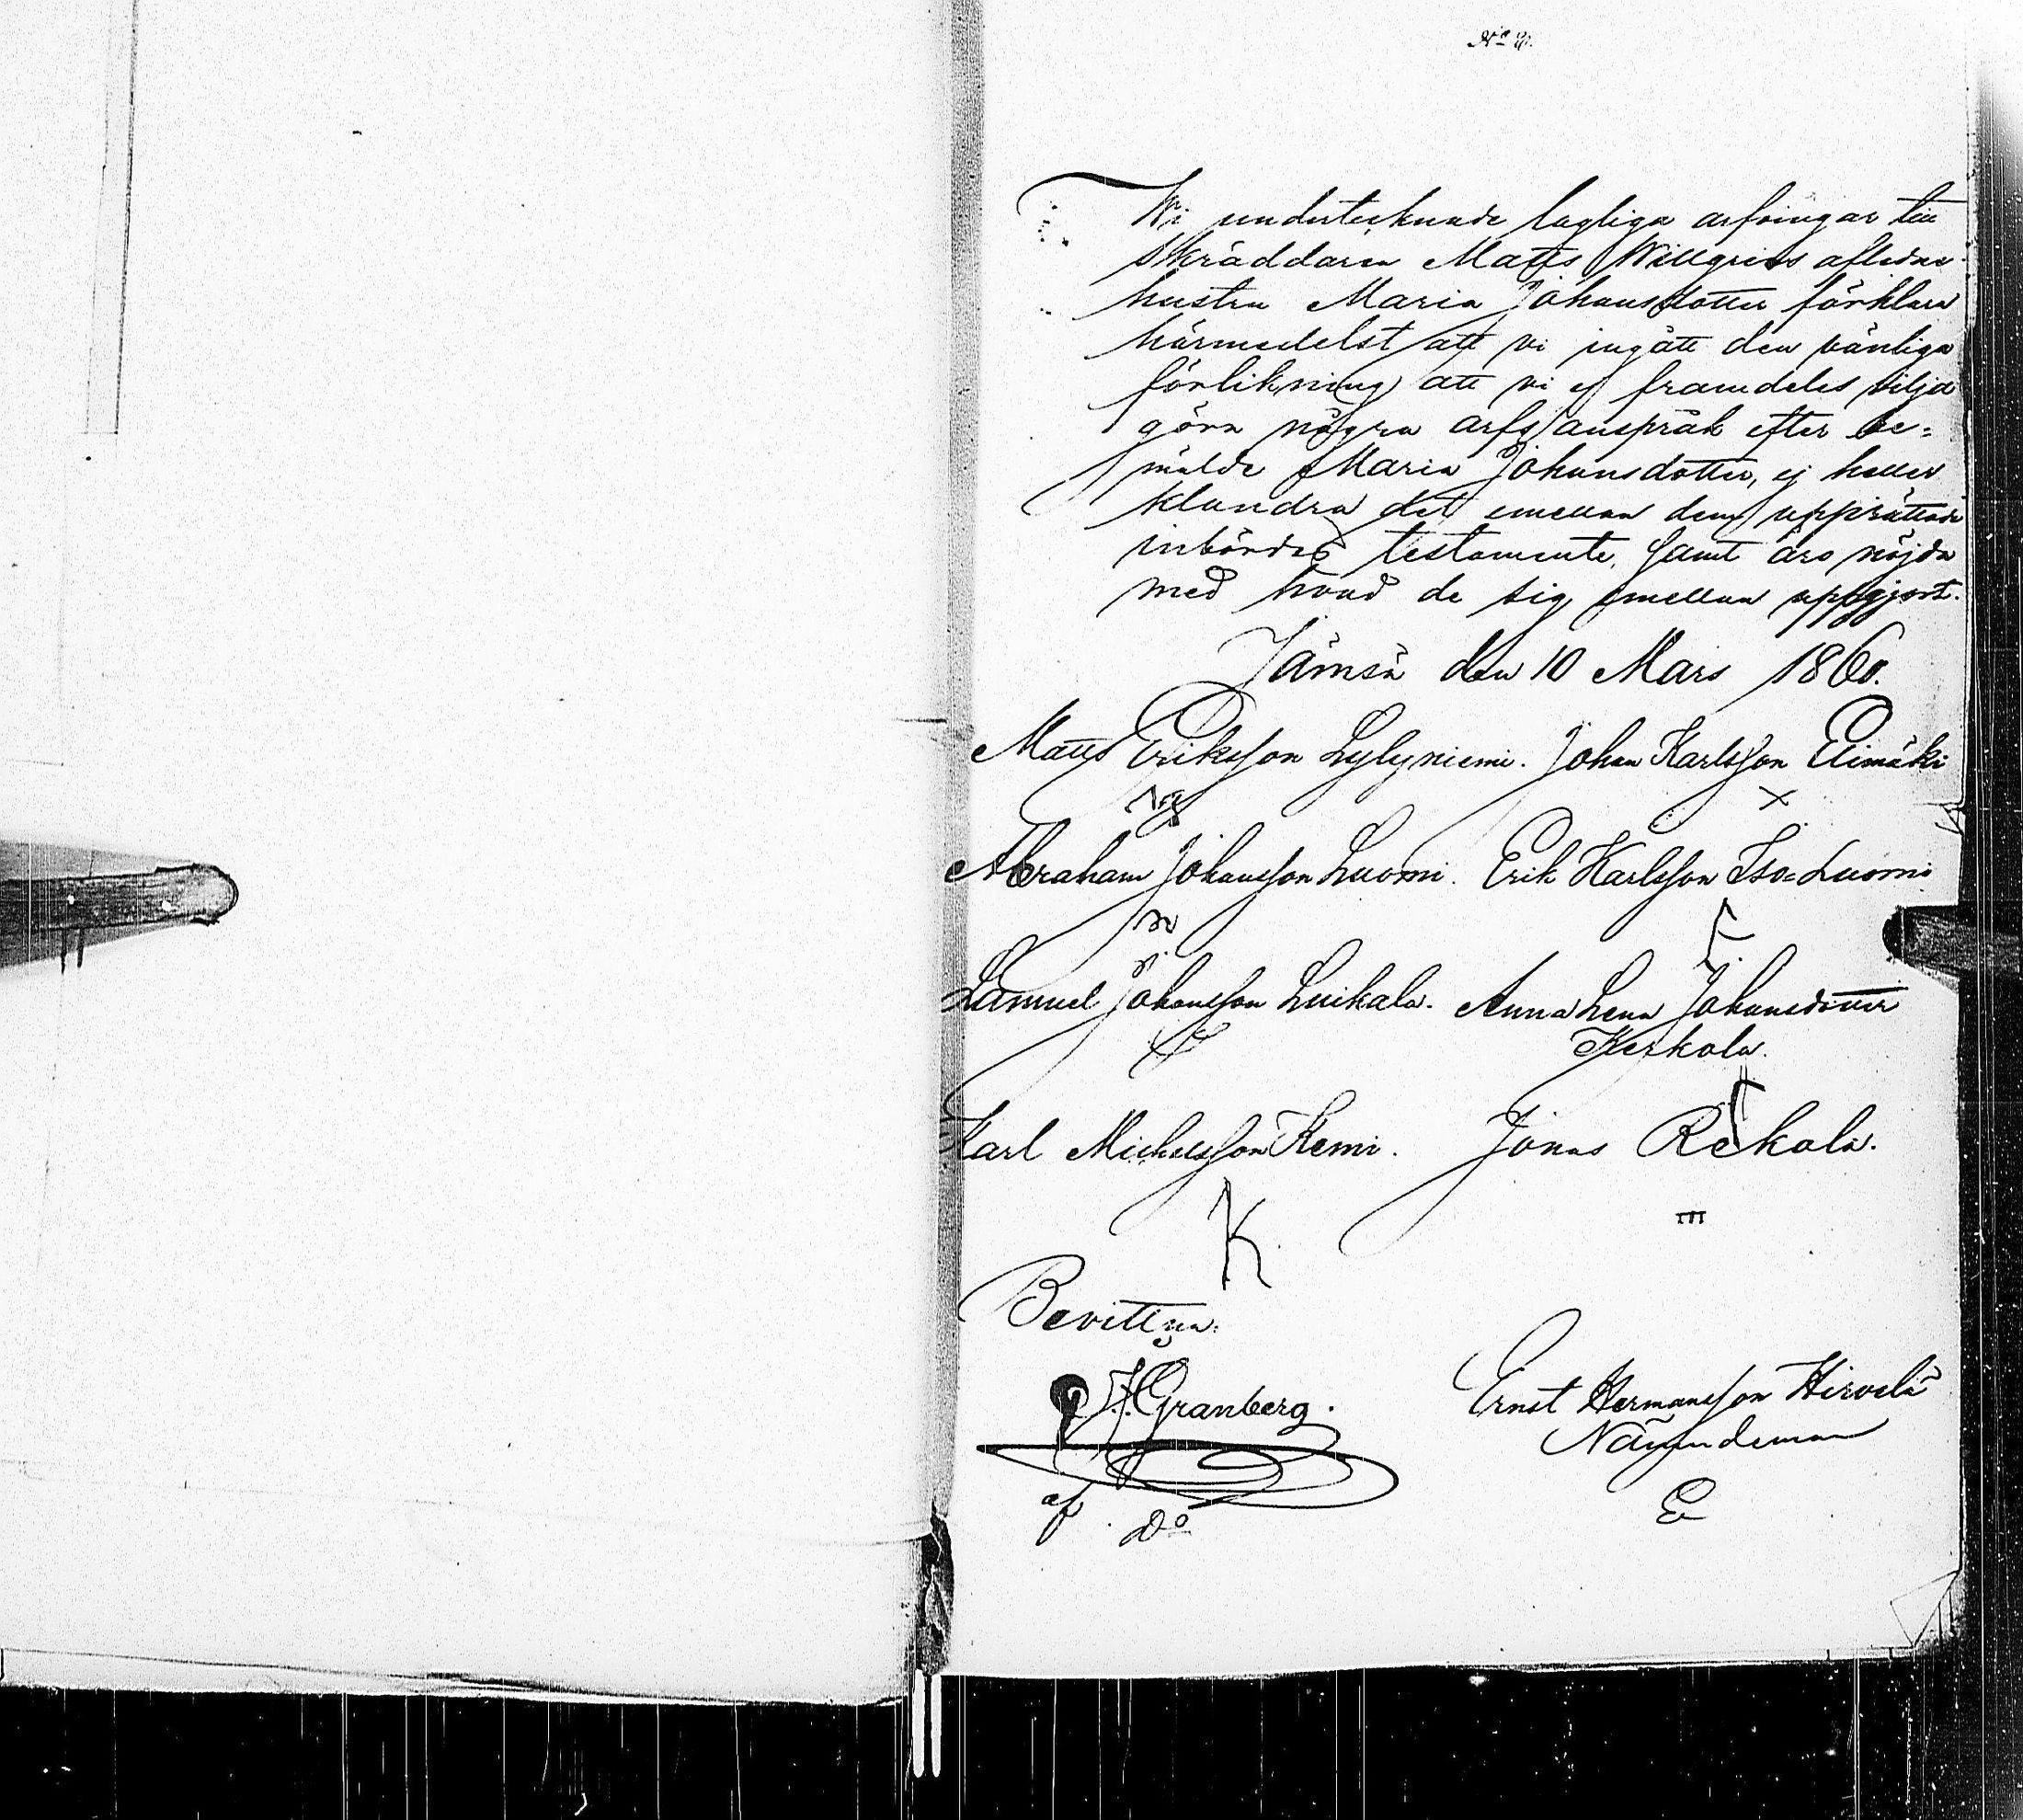 Wi undertecknade lagliga arfvingar till
Skräddaren Matts Willgrens aflidne
hustru Maria Johansdotter förklara
härmedelst att vi ingått den vänliga
förlikning att vi ej framdeles vilja
göra några arfs anspråk efter be=
mälde Maria Johansdotter, ej heller
klandra det emellan dem upprättade
inbördes testamente, samt äro nöjda
med hvad de sig emellan uppgjort.
Jämsä den 10 Mars 1860.
Matts Eriksson Lylyniemi. Johan Karlsson Elimäki
X
Abraham Johansson Luomi. Erik Karlsson Iso=Luomi
Samuel Johansson Luikala. Anna Lena Johansdotter
Keskola.
Karl Michelsson Kemi. Jonas Rekola.
K
Bevittna:
J. Granberg. Ernst Hermansson Hirvelä
Nämndeman
af Do E